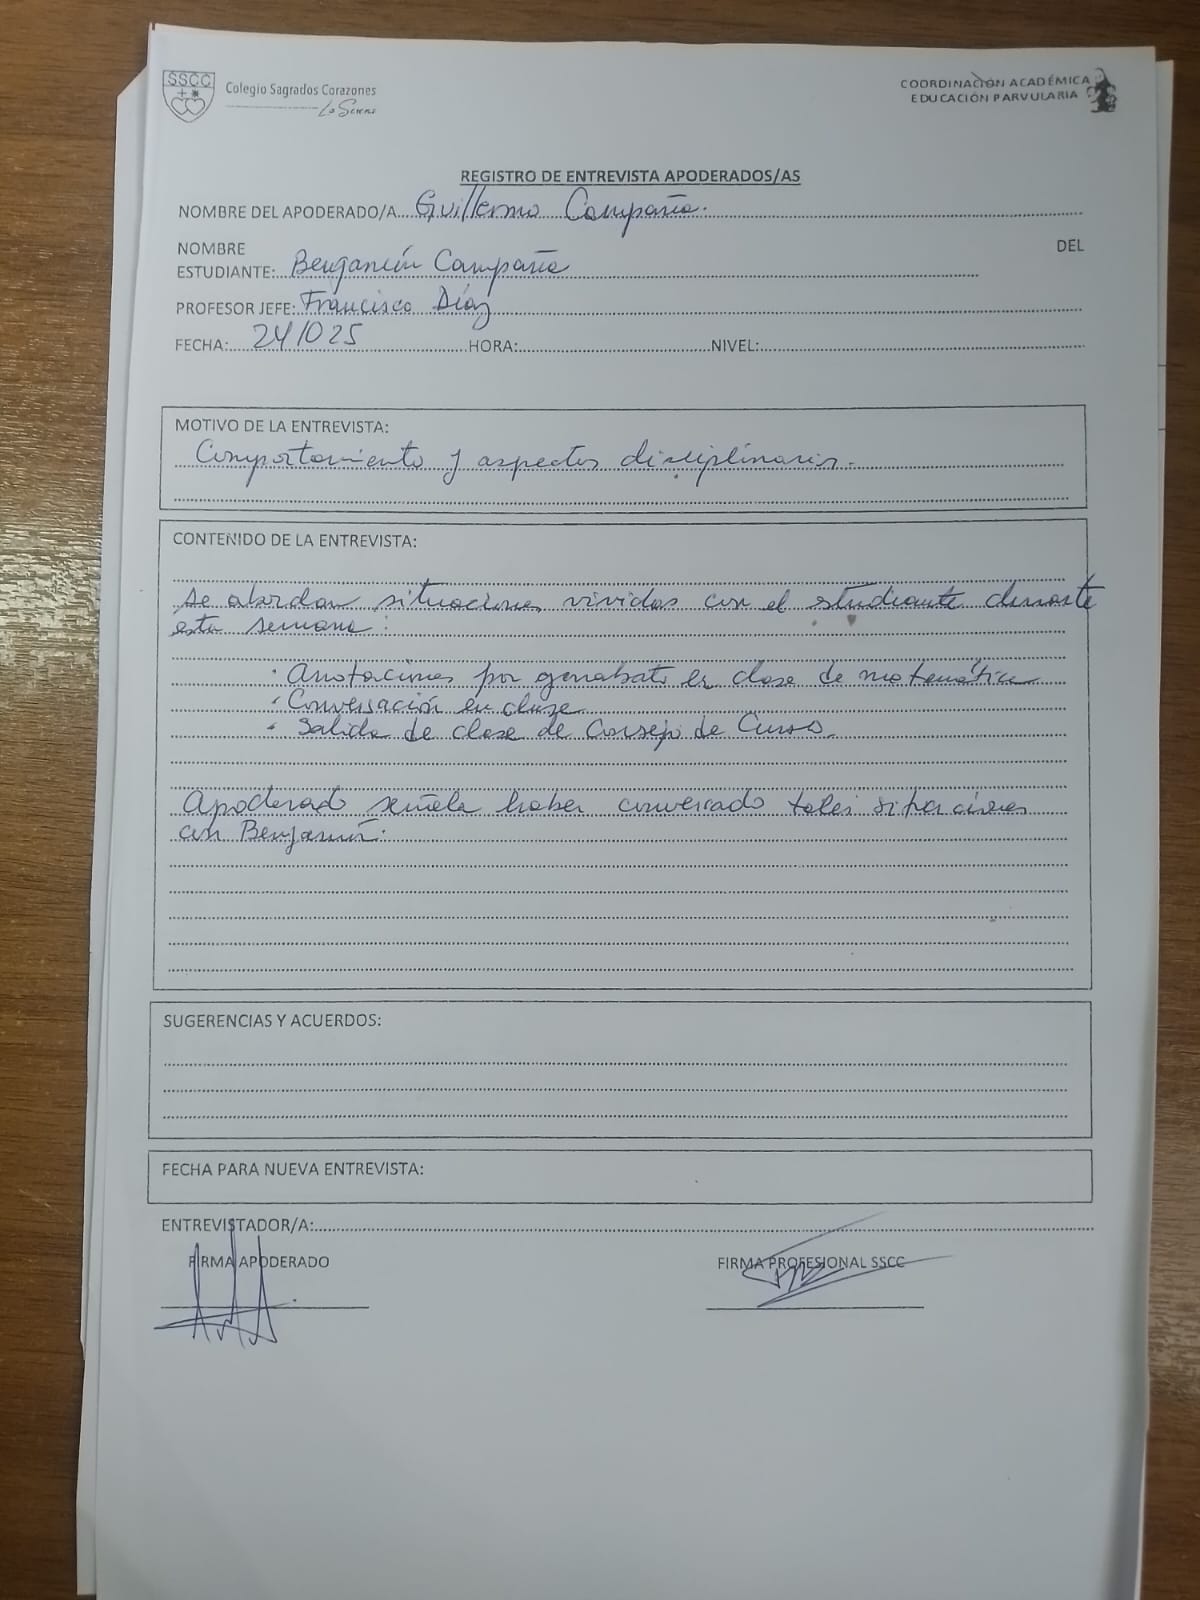 SSCC
Colegio Sagrados Corazones
La Serena
COORDINACIÓN ACADÉMICA
EDUCACIÓN PARVULARIA
REGISTRO DE ENTREVISTA APODERADOS/AS
NOMBRE DEL APODERADO/A Guillermo Campaña.
NOMBRE DEL
ESTUDIANTE: Benjamín Campaña
PROFESOR JEFE: Francisco Díaz
FECHA: 24/025 HORA: NIVEL:
MOTIVO DE LA ENTREVISTA:
Comportamiento y aspectos disciplinarios.
CONTENIDO DE LA ENTREVISTA:
Se abordan situaciones vividas con el estudiante durante
esta semana:
· Anotaciones por garabato en clase de matemática
· Conversación en clase
· Salida de clase de Consejo de Curso.
Apoderado señala haber conversado tales situaciones
con Benjamín.
SUGERENCIAS Y ACUERDOS:
FECHA PARA NUEVA ENTREVISTA:
ENTREVISTADOR/A:
FIRMA APODERADO FIRMA PROFESIONAL SSCC